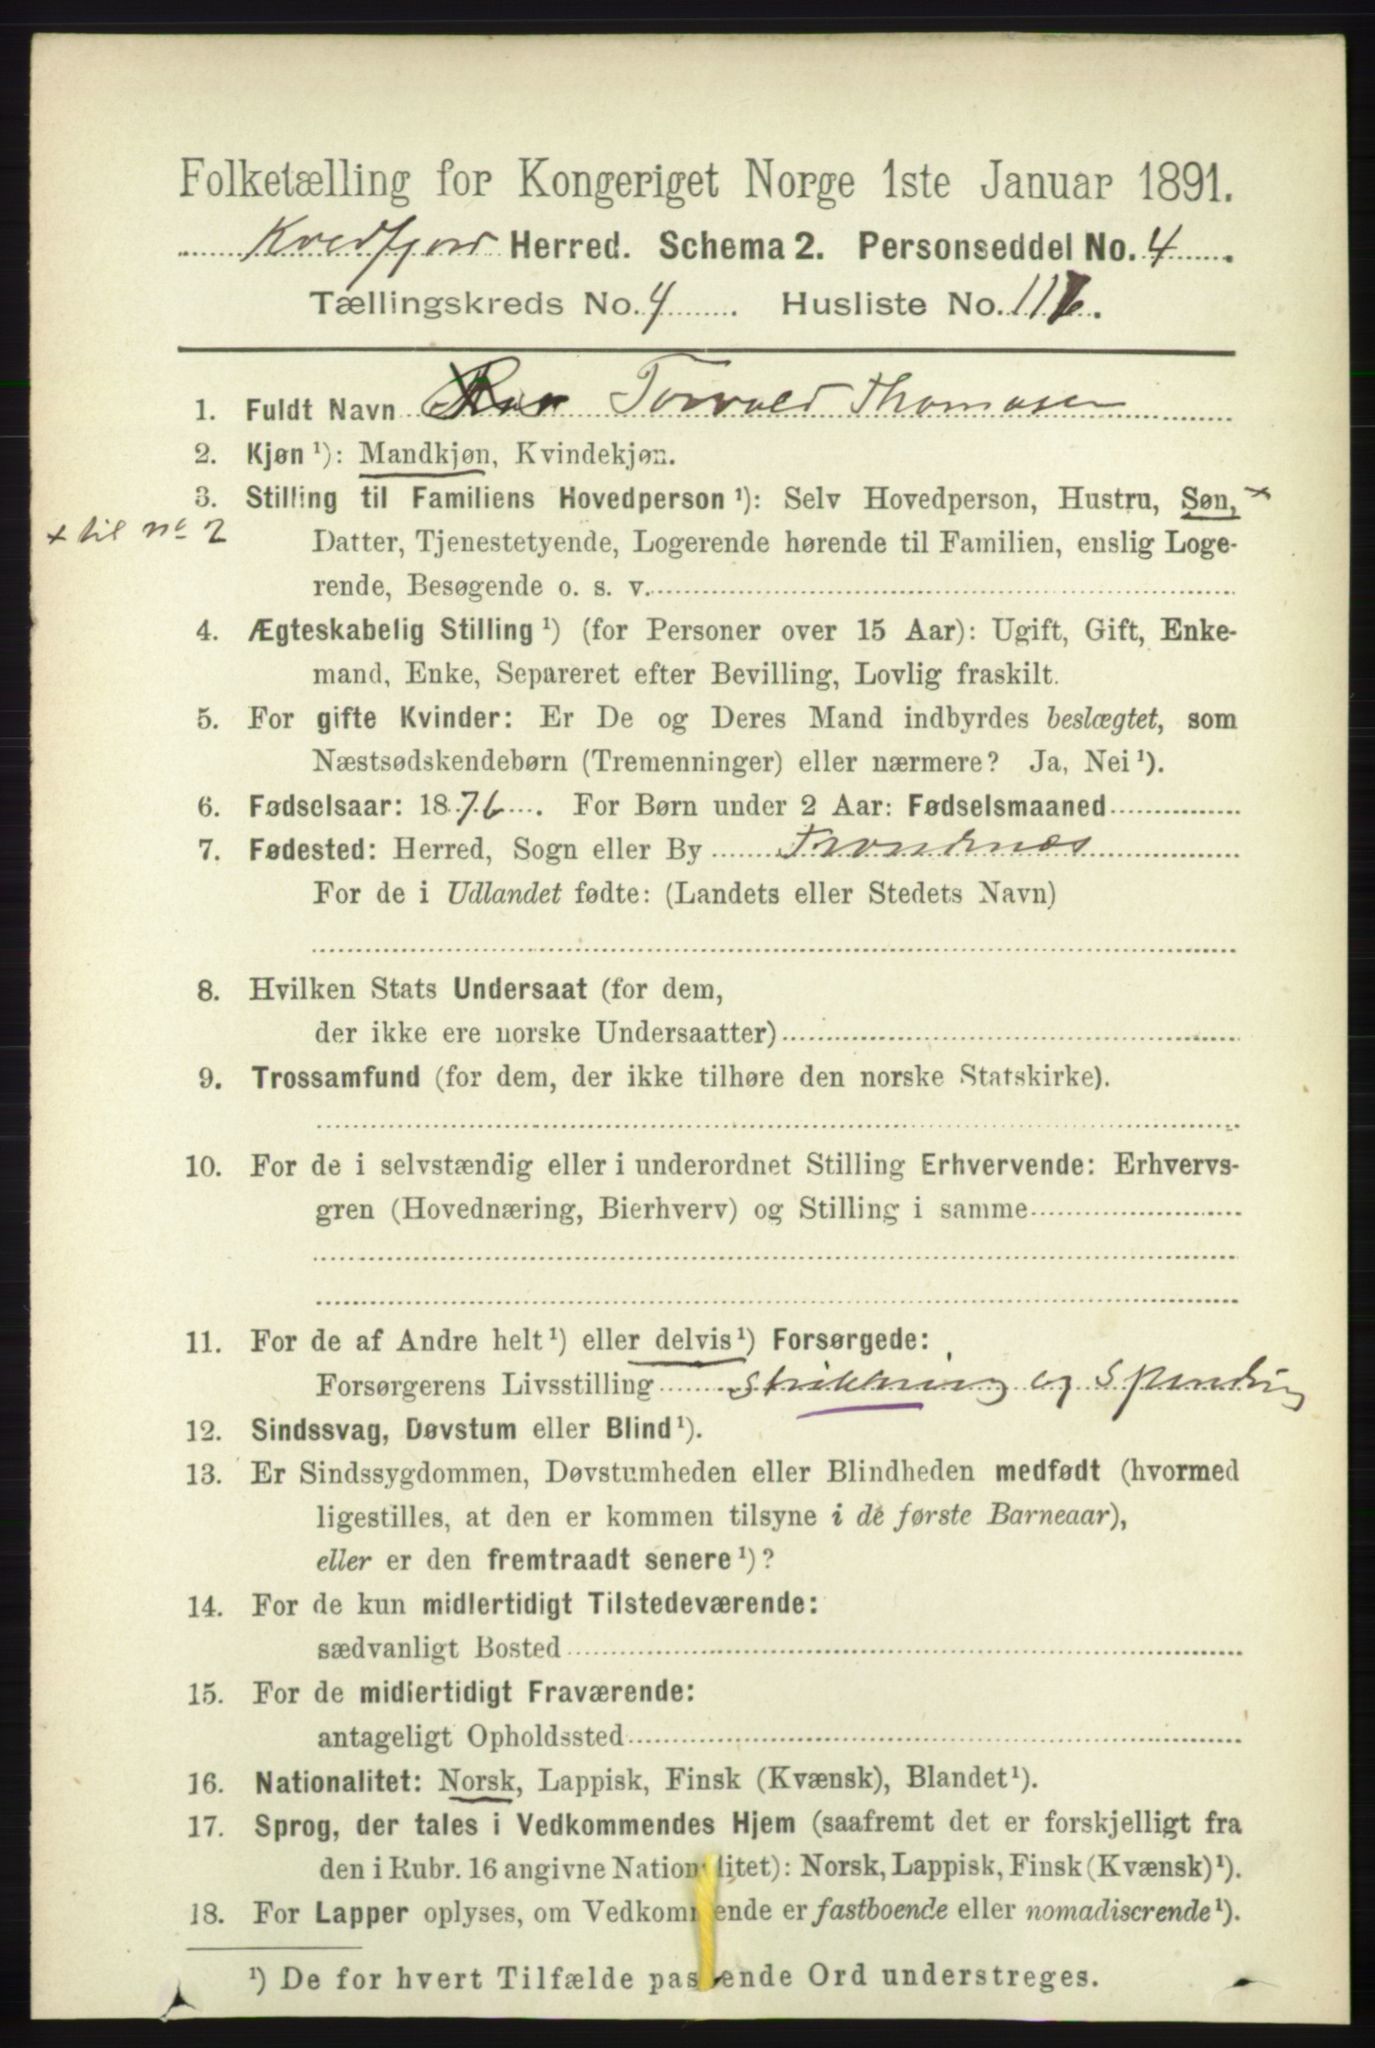 Folketælling for Kongeriget Norge 1ste Januar 1891.
Kvedfjord Herred. Schema 2. Personseddel No. 4.
Tællingskreds No. 4. Husliste No. 116.
1. Fuldt Navn Torvald Thomasen
2. Kjøn ¹): Mandkjøn, Kvindekjøn.
3. Stilling til Familiens Hovedperson ¹): Selv Hovedperson, Hustru, Søn, ×
× til No 2
Datter, Tjenestetyende, Logerende hørende til Familien, enslig Loge-
rende, Besøgende o. s. v.
4. Ægteskabelig Stilling ¹) (for Personer over 15 Aar): Ugift, Gift, Enke-
mand, Enke, Separeret efter Bevilling, Lovlig fraskilt.
5. For gifte Kvinder: Er De og Deres Mand indbyrdes beslægtet, som
Næstsødskendebørn (Tremenninger) eller nærmere? Ja, Nei ¹).
6. Fødselsaar: 1876. For Børn under 2 Aar: Fødselsmaaned
7. Fødested: Herred, Sogn eller By Trondenæs
For de i Udlandet fødte: (Landets eller Stedets Navn)
8. Hvilken Stats Undersaat (for dem,
der ikke ere norske Undersaatter)
9. Trossamfund (for dem, der ikke tilhøre den norske Statskirke).
10. For de i selvstændig eller i underordnet Stilling Erhvervende: Erhvervs-
gren (Hovednæring, Bierhverv) og Stilling i samme
11. For de af Andre helt ¹) eller delvis ¹) Forsørgede:
Forsørgerens Livsstilling Strikkning og Spinding
12. Sindssvag, Døvstum eller Blind ¹).
13. Er Sindssygdommen, Døvstumheden eller Blindheden medfødt (hvormed
ligestilles, at den er kommen tilsyne i de første Barneaar),
eller er den fremtraadt senere ¹)?
14. For de kun midlertidigt Tilstedeværende:
sædvanligt Bosted
15. For de midlertidigt Fraværende:
antageligt Opholdssted
16. Nationalitet: Norsk, Lappisk, Finsk (Kvænsk), Blandet ¹).
17. Sprog, der tales i Vedkommendes Hjem (saafremt det er forskjelligt fra
den i Rubr. 16 angivne Nationalitet): Norsk, Lappisk, Finsk (Kvænsk) ¹).
18. For Lapper oplyses, om Vedkommende er fastboende eller nomadiserende ¹).
¹) De for hvert Tilfælde passende Ord understreges.